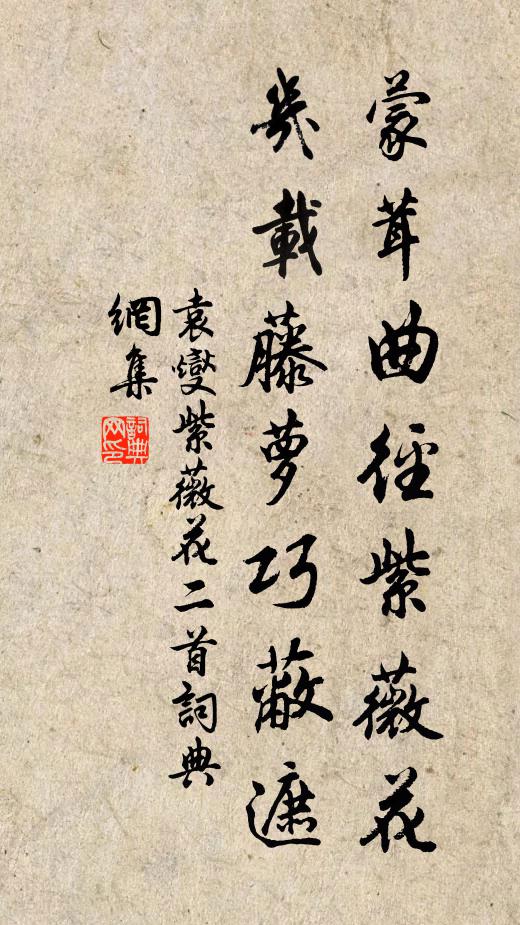 蒙茸曲徑紫薇花
幾載藤蘿巧蔽遮
袁燮紫薇花二首詞典
網集
詞典
网印